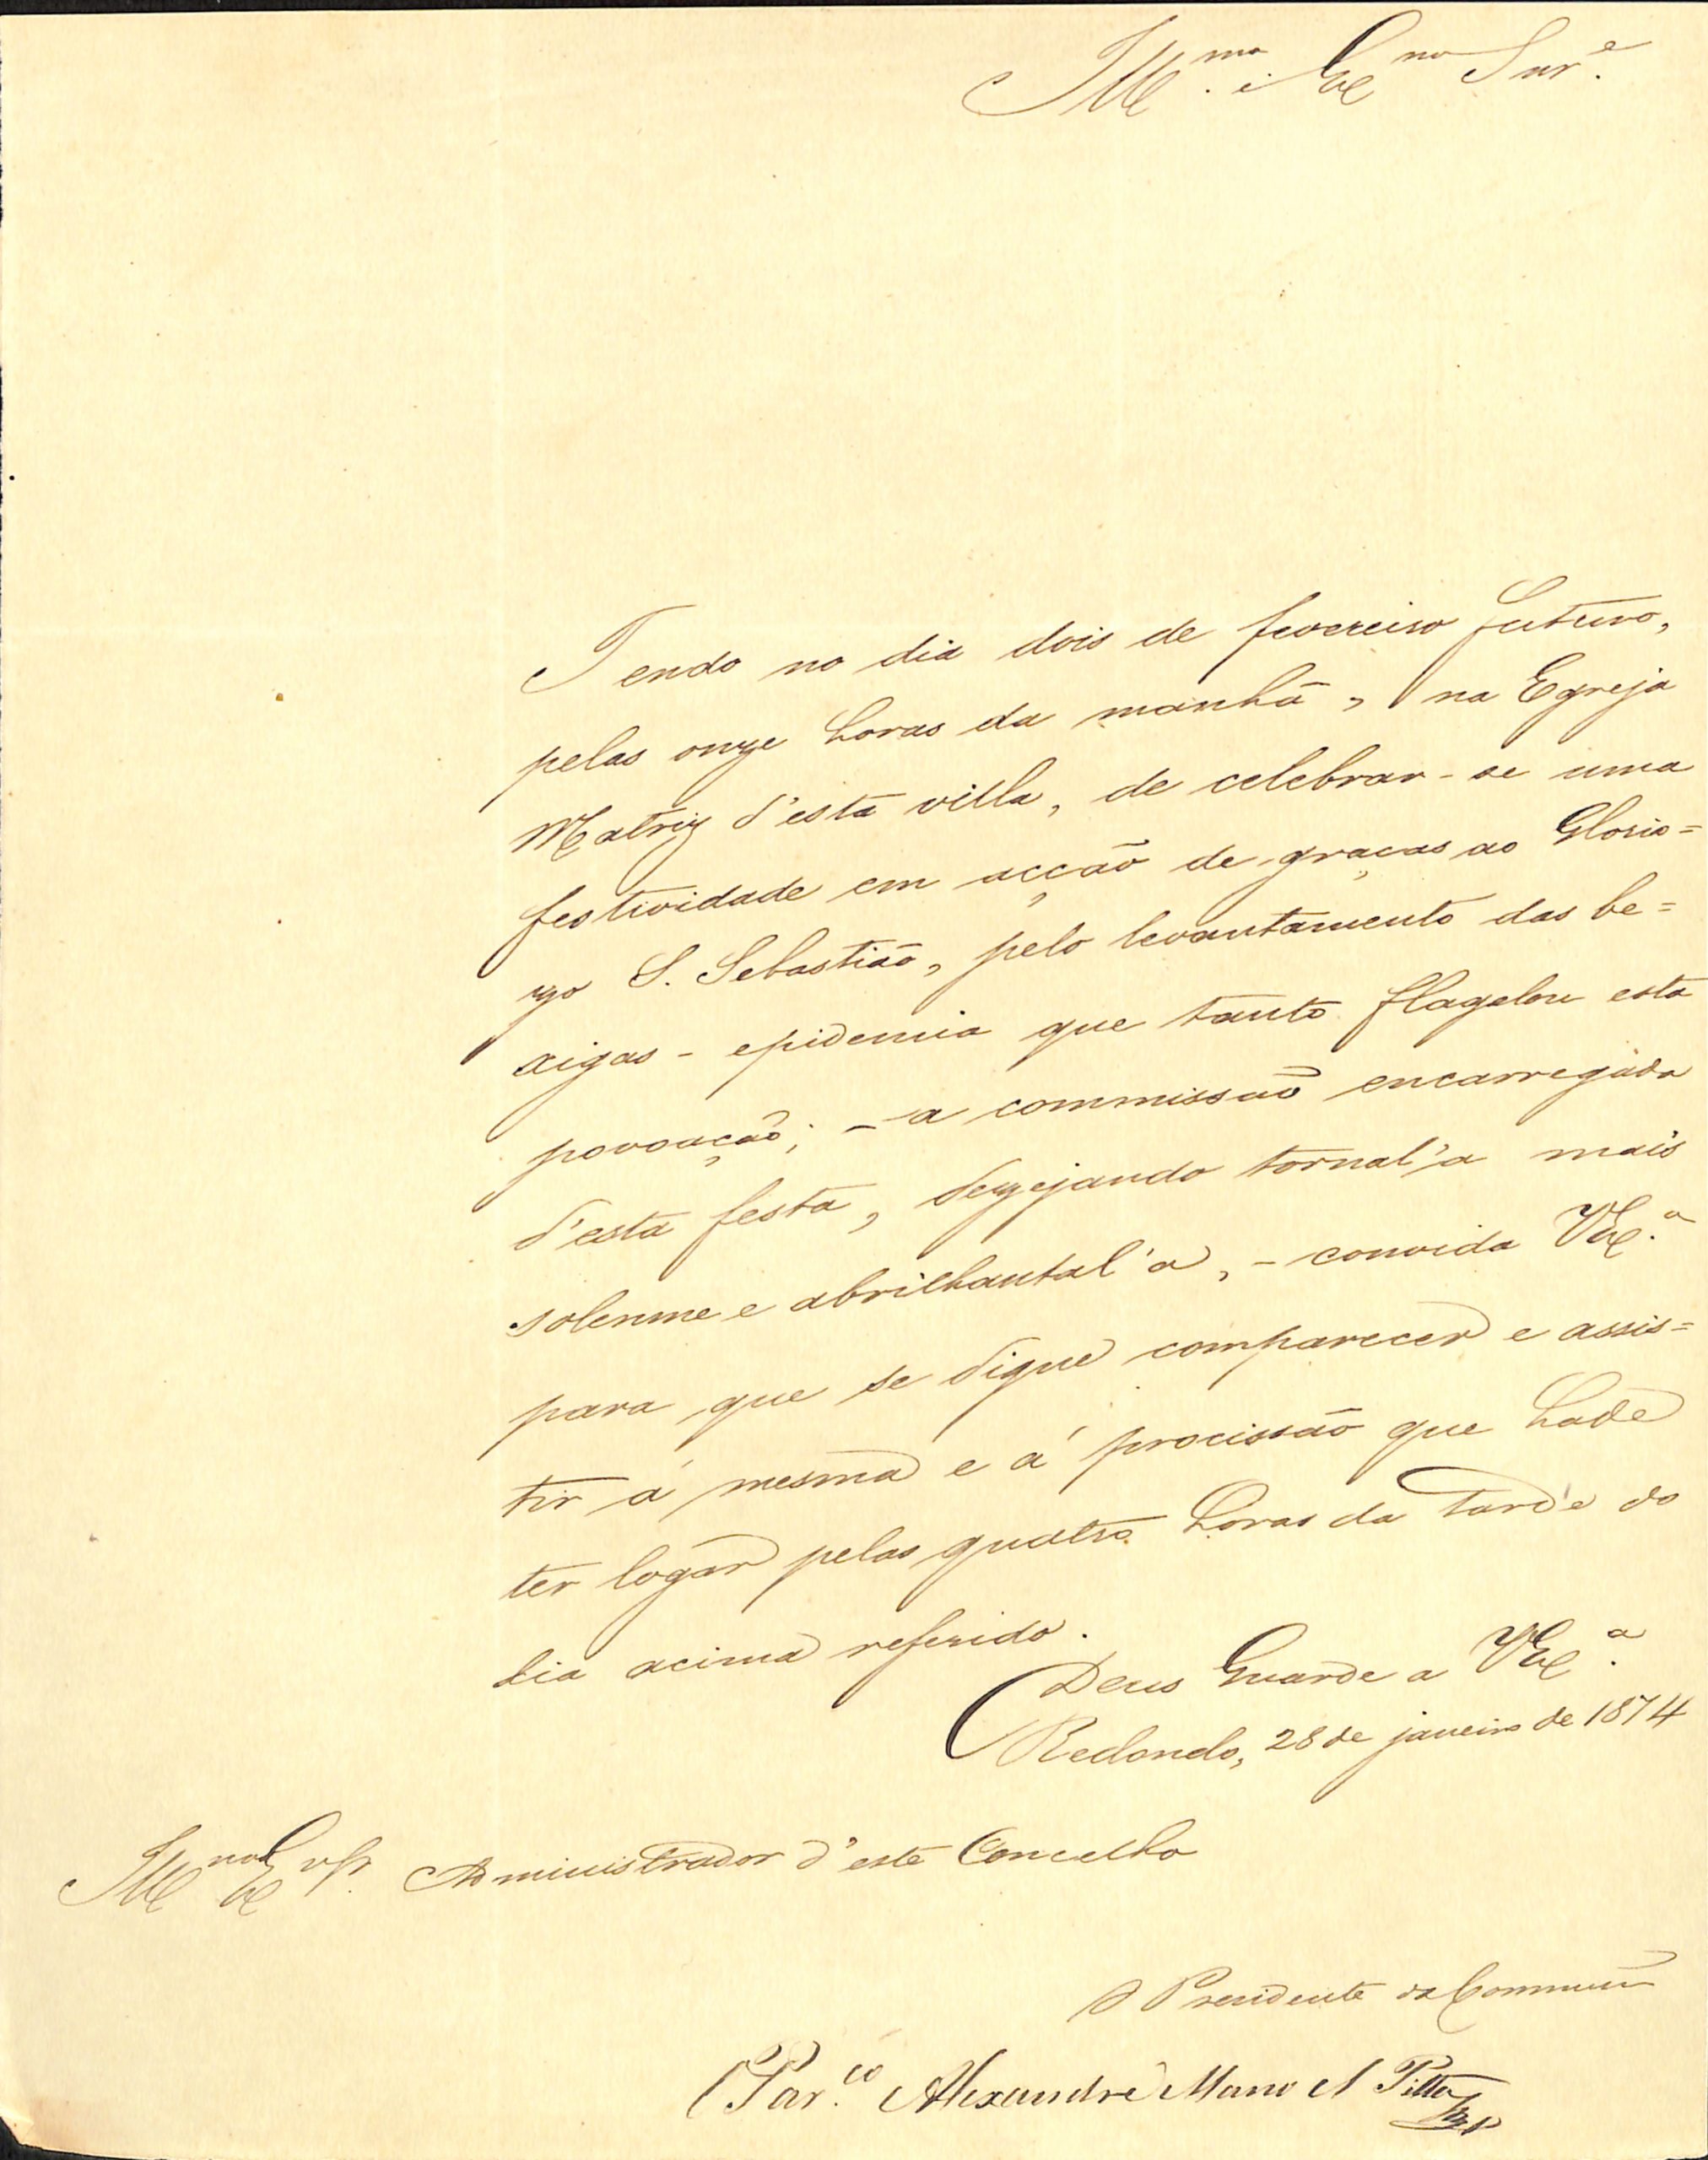 Ill.mo e Ex.mo Snr.e
Tendo no dia dois de fevereiro futuro,
pelas onze horas da manhã, na Egreja
Matriz d'esta villa, de celebrar-se uma
festividade em acção de graças ao Glorio=
zo S. Sebastião, pelo levantamento das be=
xigas - epidemia que tanto flagelou esta
povoação; - a commissão encarregada
d'esta festa, dezejando tornal'a mais
solenme e abrilhantal'a, - convida VEx.a
para que se digne comparecer e assis=
tir á mesma e á procissão que hade
ter logar pelas quatro horas da tarde do
dia acima referido.
Deus Guarde a VEx.a
Redondo, 28 de janeiro de 1874
Ill.mo Ex.mo Sr. Administrador d'este Concelho
O Presidente da Commissão
Par.co Alexandre Mano el Pitta